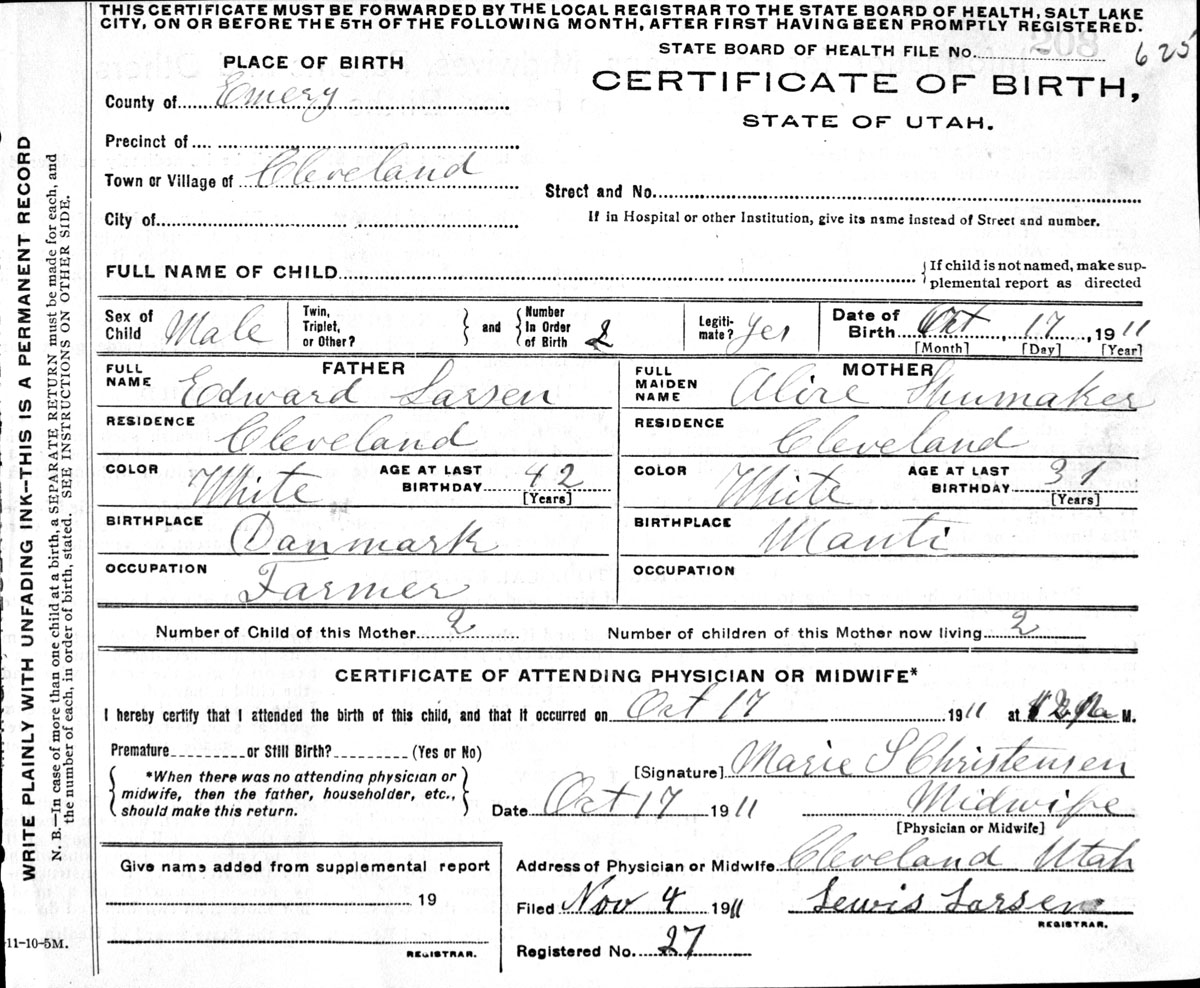 THIS CERTIFICATE MUST BE FORWARDED BY THE LOCAL REGISTRAR TO THE STATE BOARD OF HEALTH, SALT LAKE
CITY, ON OR BEFORE THE 5TH OF THE FOLLOWING MONTH, AFTER FIRST HAVING BEEN PROMPTLY REGISTERED.
STATE BOARD OF HEALTH FILE No. 208 625
PLACE OF BIRTH
CERTIFICATE OF BIRTH,
STATE OF UTAH.
County of Emery
Precinct of
Town or Village of Cleveland
Street and No.
City of
If in Hospital or other Institution, give its name instead of Street and number.
FULL NAME OF CHILD
{If child is not named, make sup-
plemental report as directed
Sex of Child Male Twin, Triplet, or Other? } and { Number In Order of Birth 2 Legiti-mate? Yes Date of Birth Oct 17, 1911
[Month] [Day] [Year]
FATHER MOTHER
FULL NAME Edward Larsen FULL MAIDEN NAME Alice Shumaker
RESIDENCE Cleveland RESIDENCE Cleveland
COLOR White AGE AT LAST BIRTHDAY 42 [Years] COLOR White AGE AT LAST BIRTHDAY 31 [Years]
BIRTHPLACE Danmark BIRTHPLACE Manti
OCCUPATION Farmer OCCUPATION
Number of Child of this Mother 2 Number of children of this Mother now living 2
CERTIFICATE OF ATTENDING PHYSICIAN OR MIDWIFE*
I hereby certify that I attended the birth of this child, and that it occurred on Oct 17 1911 at M.
Premature or Still Birth? (Yes or No)
{ *When there was no attending physician or
midwife, then the father, householder, etc.,
should make this return. }
[Signature] Marie S Christensen
Date Oct 17 1911 Midwife
[Physician or Midwife]
Give name added from supplemental report
19
REGISTRAR.
Address of Physician or Midwife Cleveland Utah
Filed Nov 4 1911 Lewis Larsen
REGISTRAR.
Registered No. 27
11-10-5M.
WRITE PLAINLY WITH UNFADING INK--THIS IS A PERMANENT RECORD
N. B.—In case of more than one child at a birth, a SEPARATE RETURN must be made for each, and
the number of each, in order of birth, stated. SEE INSTRUCTIONS ON OTHER SIDE.